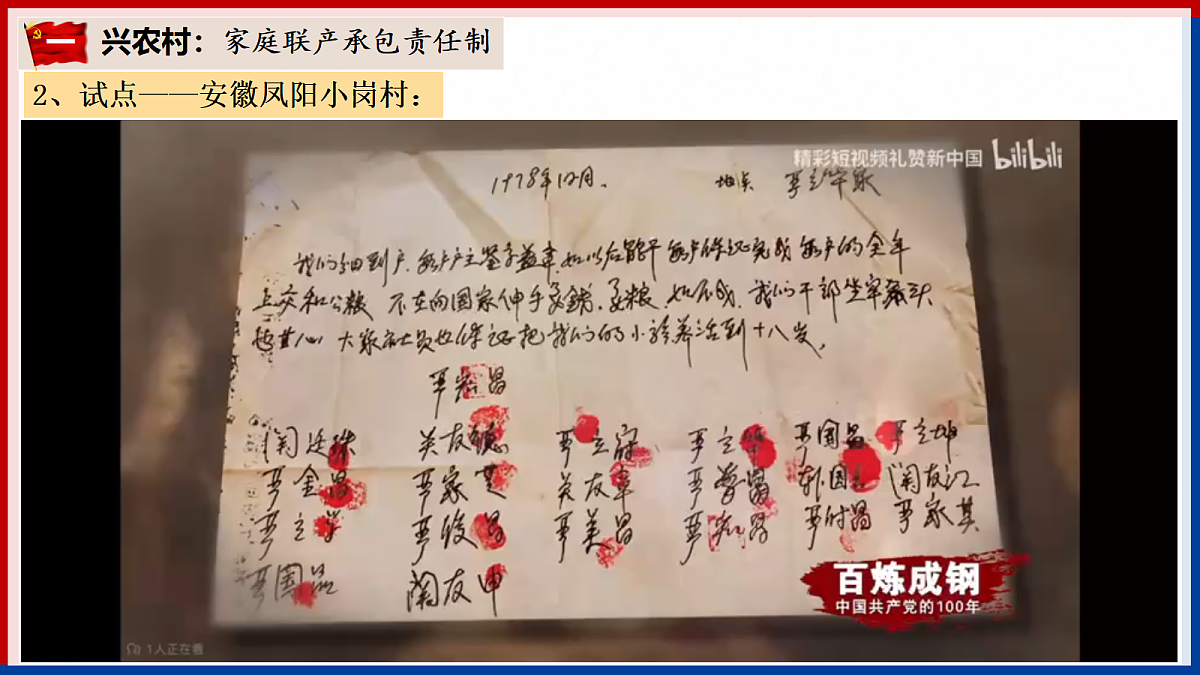 一
兴农村：家庭联产承包责任制
2、试点——安徽凤阳小岗村：
精彩短视频礼赞新中国 bilibili
1978年12月. 地点 严立华家
我们分田到户.每户户主签字盖章.如以后能干每户保证完成每户的全年
上交和公粮 不在向国家伸手要钱.要粮 如不成.我们干部坐牢杀头
也甘心 大家社员也保证把我们的小孩养活到十八岁.
严宏昌
关廷珠 关友德 严立符 严立华 严国昌 严立坤
严金昌 严家芝 关友章 严学昌 韩国云 关友江
严立学 严俊昌 严美昌 严宏昌 严付昌 严家其
严国品 关友申
百炼成钢
中国共产党的100年
1人正在看